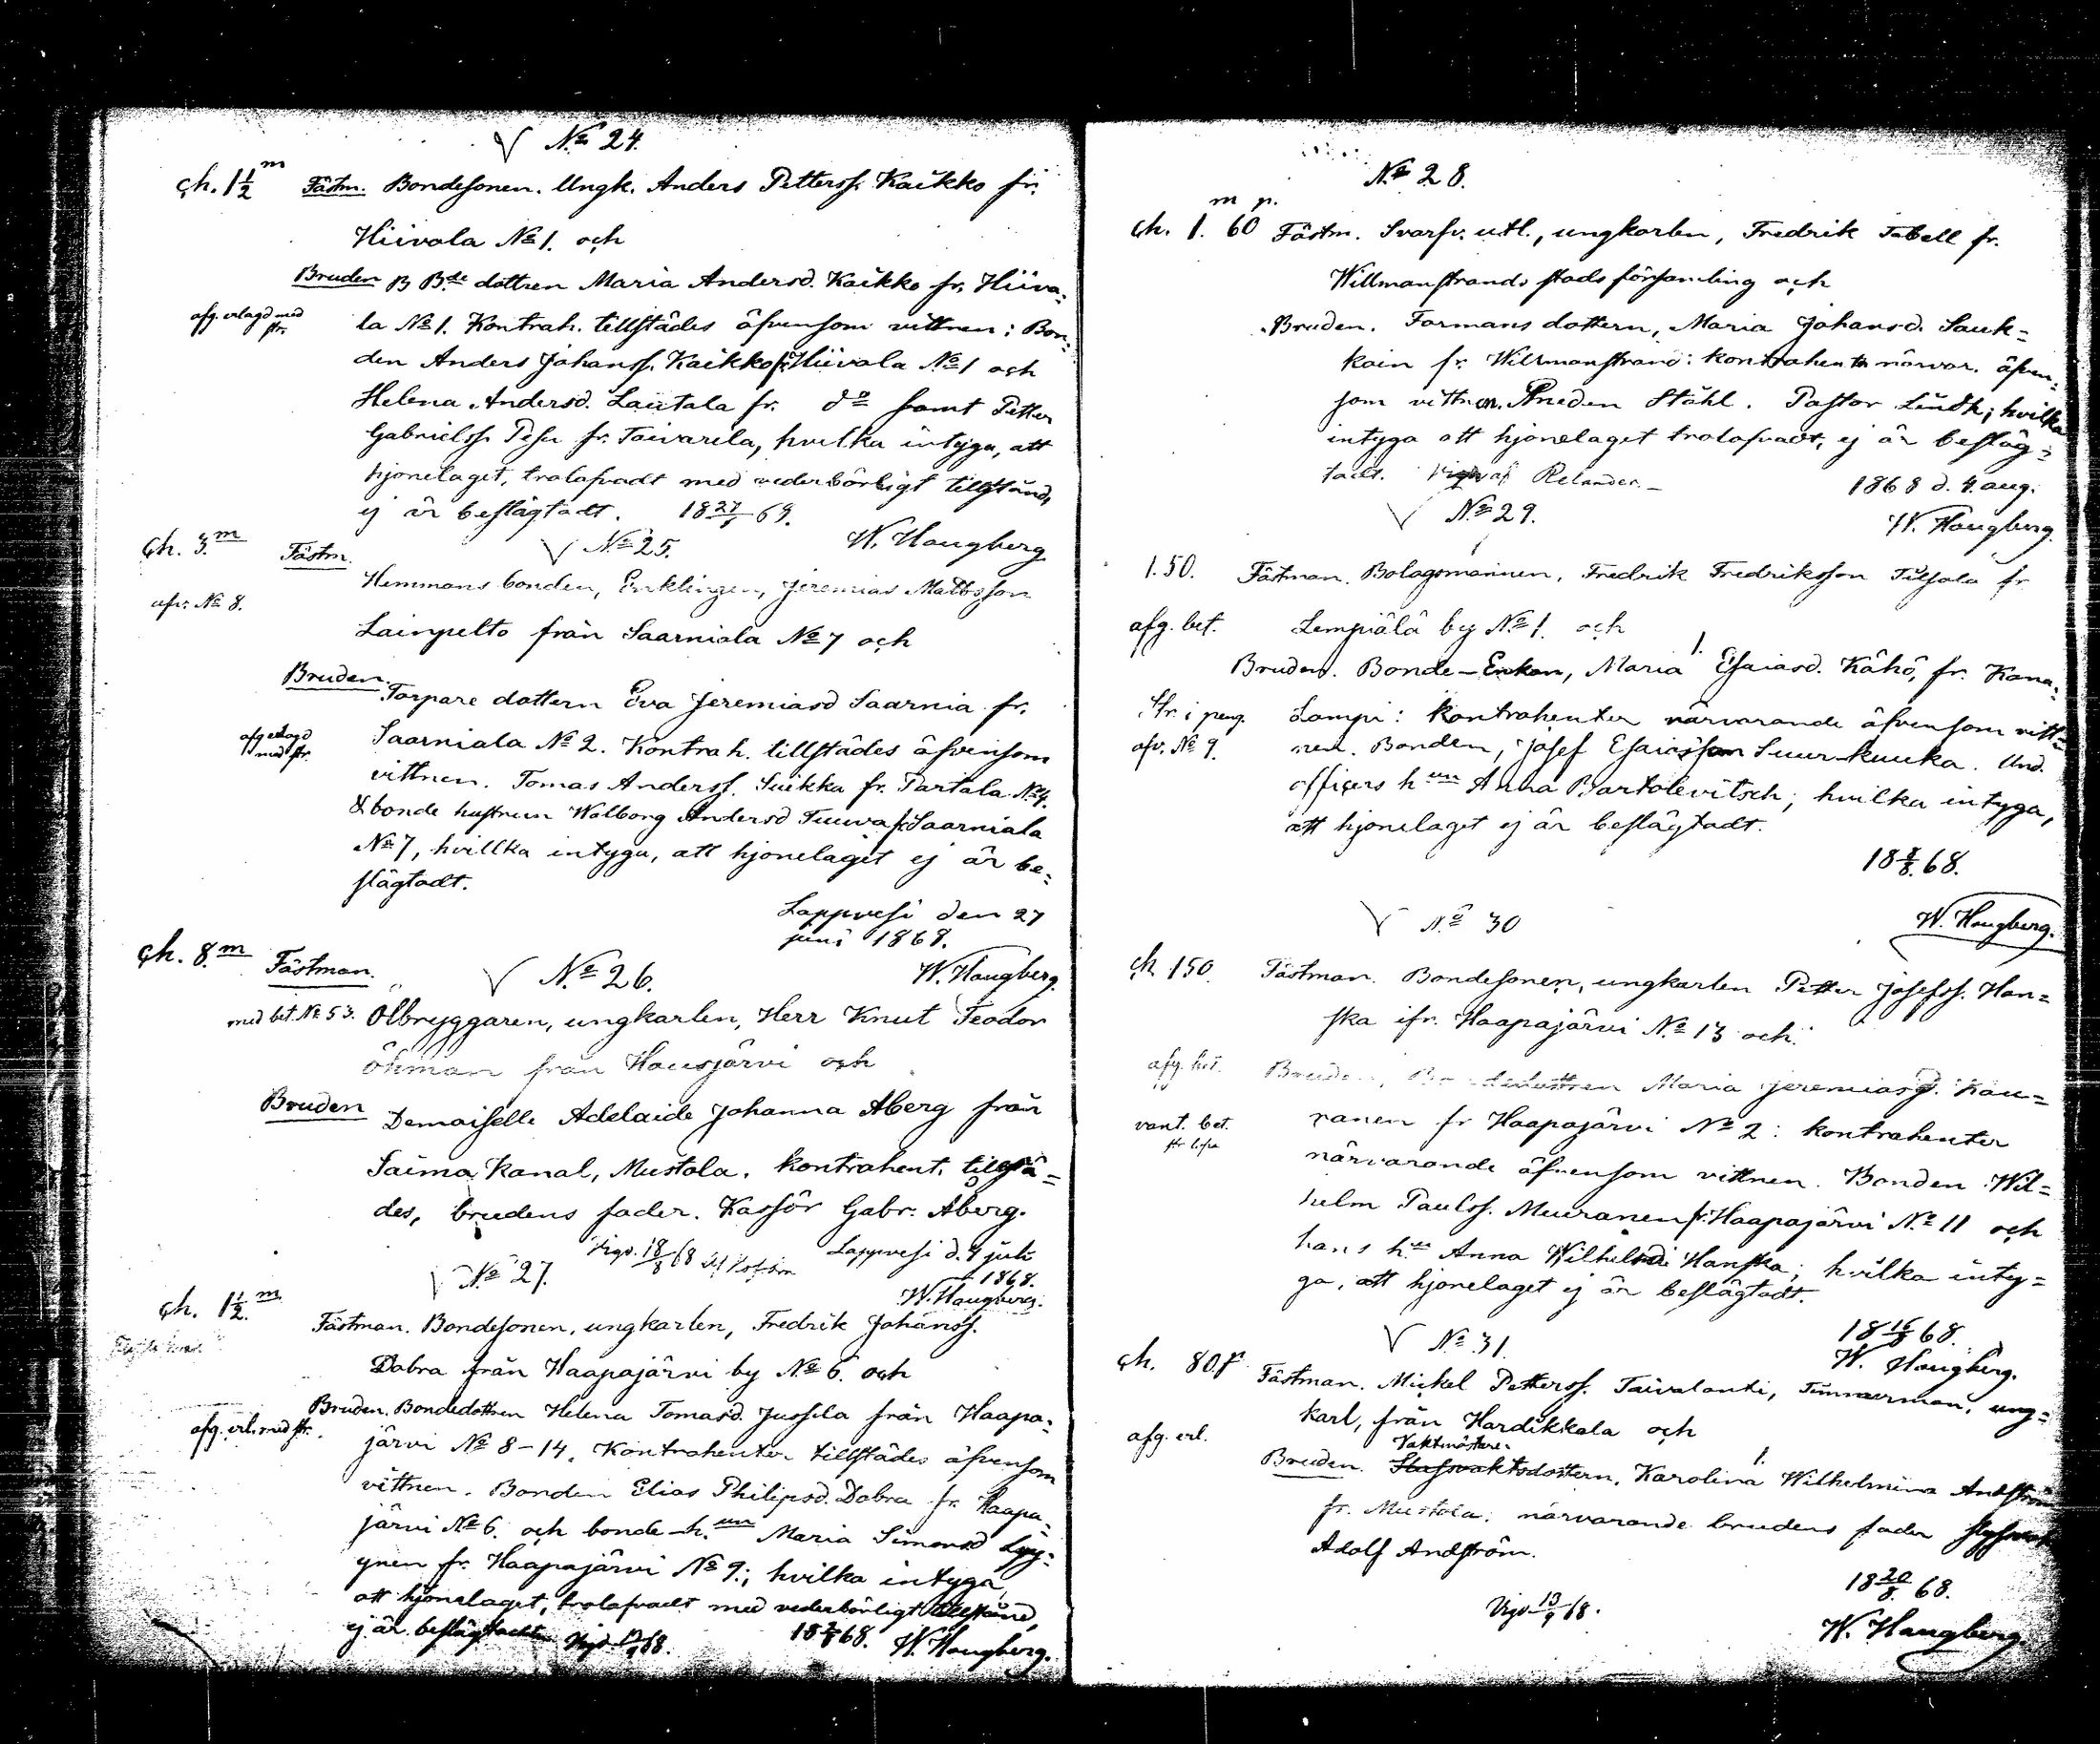 √ No 24.
ch. 1 1/2 m Fästm. Bondesonen. Ungk. Anders Petterss. Kaikko fr.
Hiivola No 1. och
Bruden B B.de dottren Maria Andersd. Kaikko fr. Hiiva=
afg. erlagd med str.
la No 1. Kontrah. tillstädes äfvensom vittnen: Bon=
den Anders Johanss. Kaikko fr. Hiivola No 1 och
Helena Andersd. Lautala fr. do samt Petter
Gabrielss. Pesu fr. Toivarila, hvilka intyga, att
hjonelaget, trolofvadt med vederbörligt tillstånd,
ej är beslägtadt. 18 27/ 69.
W. Haugberg
ch. 3 m √ No 25.
Fästm.
Hemmans bonden, Enklingen, Jeremias Mattsson
afv. No 8.
Lainpelto från Saarniala No 7 och
Bruden.
Torpare dottern Eva Jeremiasd Saarnia fr.
afg erlagd med str.
Saarniala No 2. Kontrah. tillstädes äfvensom
vittnen. Tomas Anderss. Suikka fr. Partala No 4.
& bonde hustrun Walborg Andersd Tuuva fr. Saarniala
No 7, hvillka intyga, att hjonelaget ej är be=
slägtadt.
Lappvesi den 27
juni 1868.
W. Haugberg.
ch. 8. m Fästman. √ No 26.
med bet. No 53. Ölbryggaren, ungkarlen, Herr Knut Teodor
Öhman från Hausjärvi och
Bruden Demoiselle Adelaide Johanna Åberg från
Saima Kanal, Mustola. Kontrahent. tillstä=
des, brudens fader. Kassör Gabr. Åberg.
Vigd. 18/8 68
Lappvesi d. 4 juli
1868.
W. Haugberg.
√ No 27.
ch. 1 1/2. m
Fästman. Bondesonen, ungkarlen, Fredrik Johanss.
Dobra från Haapajärvi by No 6. och
Bruden. Bondedottren Helena Tomasd. Jussila från Haapa=
afg. erl. med str.
järvi No 8-14. Kontrahenter tillstädes äfvensom
vittnen. Bonden Elias Philipsd. Dobra fr. Haapa=
järvi No 6. och bonde h.un Maria Simonsd Lyy=
ynen fr. Haapajärvi No 9.; hvilka intyga,
att hjonelaget, trolofvadt med vederbörligt tillstånd,
ej är beslägtadt 68. 18 68. W. Haugberg.
No 28.
ch. 1. m 60 p. Fästm. Svarfv. utl., ungkarlen, Fredrik Tabell fr.
Willmanstrands stadsförsamling och
Bruden. Formans dottern, Maria Johansd. Sauk=
kain fr. Willmanstrand: kontrahentr närvar. äfven=
som vittnen. Ståhl. Pastor Lindh; hvilka
intyga att hjonelaget trolofvadt, ej är besläg=
tadt. Vigd af Relander.
1868 d. 4 aug.
W. Haugberg.
√ No 29.
1.50. Fästman. Bolagsmannen, Fredrik Fredriksson Tilsala fr
afg. bet. Lempiälä by No 1. och
Bruden. Bonde-Enkan, Maria Esaiasd. Kähö, fr. Kana=
Str. i peng. Lampi: Kontrahenter närvarande äfvensom vitt=
afv. No 9. nen. Bonden, Josef Esaiasson Suur-kuuka. Und.
officers h un Anna Bartolevitsch; hvilka intyga,
att hjonelaget ej är beslägtadt.
18 8/8. 68.
W. Haugberg.
√ No 30
ch 150. Fästman. Bondesonen, ungkarlen Petter Josefss. Han=
ska ifr. Haapajärvi No 13 och
Bruden, Bondedottren Maria Jeremiasd. Kau=
vant. bet.
ranen fr Haapajärvi No 2: kontrahenter
närvarande äfvensom vittnen. Bonden Wil=
helm Paulss. Muuranen fr. Haapajärvi No 11 och
hans h.un Anna Wilhelmsd. Hanska; hvilka inty=
ga, att hjonelaget ej är beslägtadt.
18 16/8 68.
W. Haugberg.
√ No 31.
ch. 80. p. Fästman. Mickel Petterss. Taivalanti, Timmerman, ung=
karl, från Hardikkala och
afg. erl. Vaktmästare-
Bruden. Slussvaktsdottern, Karolina Wilhelmina Andström
fr. Mustola: närvarande brudens fader
Adolf Andström.
18 20/8. 68.
Vigd. 13/9 68.
W. Haugberg.